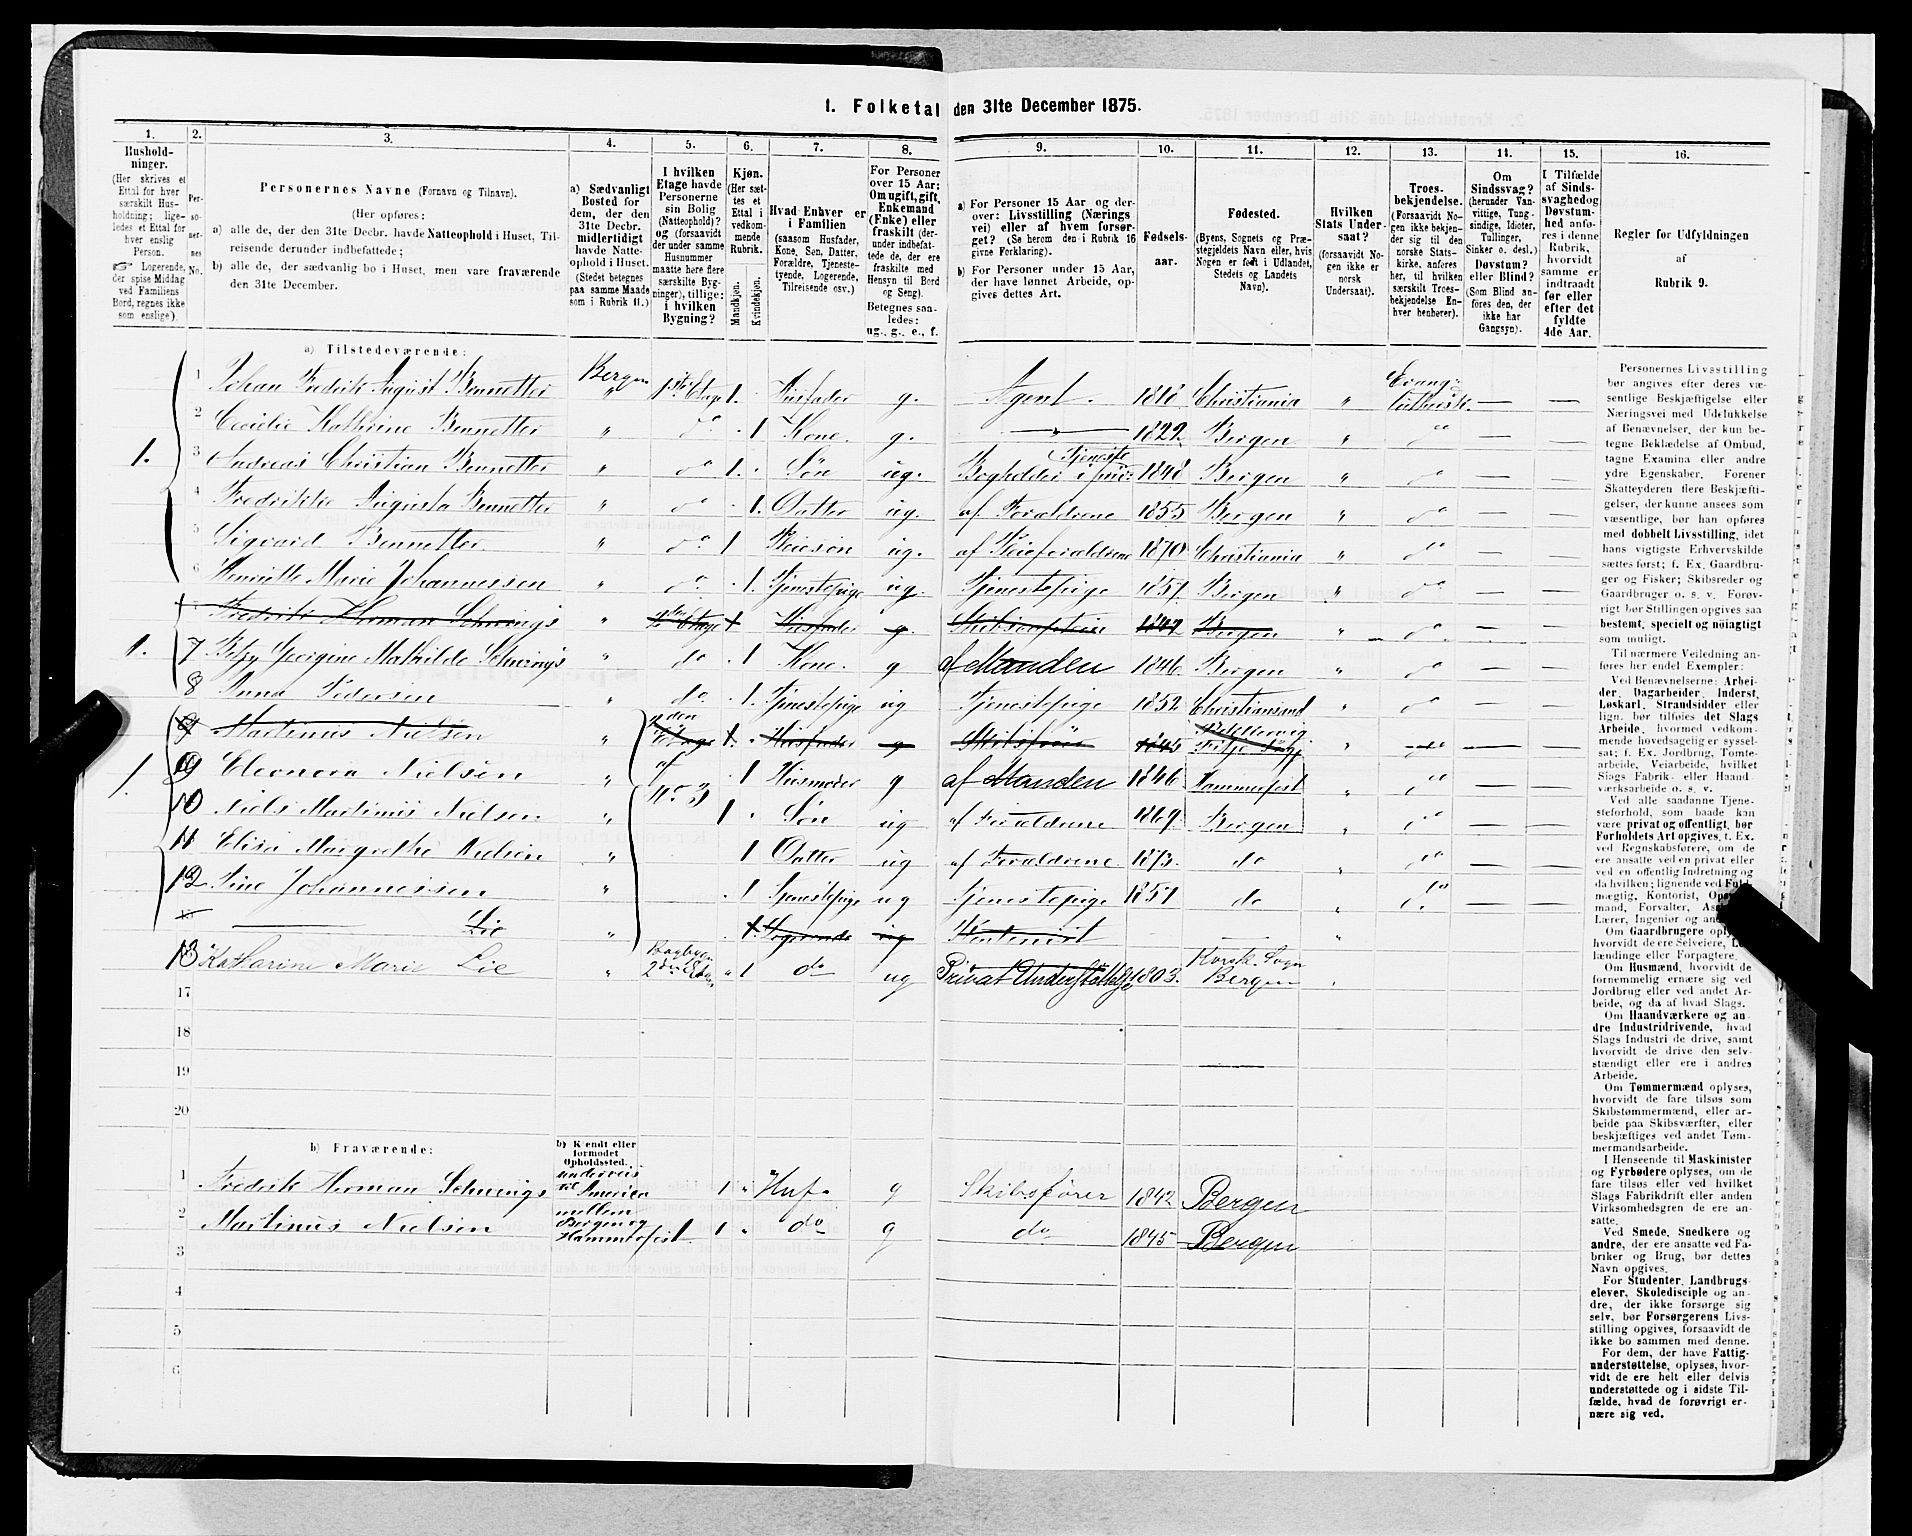 1. Folketal den 31te December 1875.
1.
2.
3.
4.
5.
6.
7.
8.
9.
10.
11.
12.
13.
14.
15.
16.
Hushold-
ninger.
(Her skrives et
Ettal for hver
særskilt Hus-
holdning; lige-
ledes et Ettal for
hver enslig
Person.
☞ Logerende,
der spise Middag
ved Familiens
Bord, regnes ikke
som enslige).
Per-
so-
ner-
nes
No.
Personernes Navne (Fornavn og Tilnavn).
(Her opføres:
a) alle de, der den 31te Decbr. havde Natteophold i Huset, Til-
reisende derunder indbefattede;
b) alle de, der sædvanlig bo i Huset, men vare fraværende
den 31te December.
a) Sædvanligt
Bosted for
dem, der den
31te Decbr.
midlertidigt
havde Natte-
ophold i Huset.
(Stedet betegnes
paa samme Maade
som i Rubrik 11.)
I hvilken
Etage havde
Personerne
sin Bolig
(Natteophold)?
og (forsaavidt
der under samme
Husnummer
maatte høre flere
særskilte Byg-
ninger), tillige:
i hvilken
Bygning?
Kjøn.
(Her sæt-
tes et
Ettal i
vedkom-
mende
Rubrik.
Mandkjøn.
Kvindekjøn.
Hvad Enhver er
i Familien
(saasom Husfader,
Kone, Søn, Datter,
Forældre, Tjeneste-
tyende, Logerende,
Tilreisende osv.)
For Personer
over 15 Aar:
Om ugift, gift,
Enkemand
(Enke) eller
fraskilt (der-
under indbefat-
tede de, der ere
fraskilte med
Hensyn til Bord
og Seng).
Betegnes saa-
ledes:
ug., g., e., f.
a) For Personer 15 Aar og der-
over: Livsstilling (Nærings
vei) eller af hvem forsør-
get? (Se herom den i Rubrik 16
givne Forklaring).
b) For Personer under 15 Aar,
der have lønnet Arbeide, op-
gives dettes Art.
Fødsels-
aar.
Fødested.
(Byens, Sognets og Præ-
stegjeldets Navn eller, hvis
Nogen er født i Udlandet,
Stedets og Landets
Navn).
Hvilken
Stats Under-
saat?
(forsaavidt No-
gen ikke er
norsk
Undersaat).
Troes-
bekjendelse.
(Forsaavidt No-
gen ikke bekjen-
der sig til den
norske Stats-
kirke, anføres
her, til hvilken
særskilt Troes-
bekjendelse En-
hver henhører).
Om
Sindssvag?
(herunder Van-
vittige, Tung-
sindige, Idioter,
Tullinger,
Sinker o. desl.)
Døvstum?
eller Blind?
(Som Blind an-
føres den, der
ikke har
Gangsyn).
I Tilfælde
af Sinds-
svaghed og
Døvstum-
hed anfø-
res i denne
Rubrik,
hvorvidt
samme er
indtraadt
før eller
efter det
fyldte
4de Aar.
Regler for Udfyldningen
af
Rubrik 9.
a) Tilstedeværende:
1 Johan Fredrik August Bennetter Bergen " 1ste Etage 1. Husfader g. Agent. 1818 Christiania " Evang: luthersk. — —
2 Cecilie Kathrine Bennetter " do 1 Kone. g. " 1822. Bergen " do — —
1. 3 Andreas Christian Bennetter " do 1. Søn ug. Bogholder i Tjeneste 1848 Bergen " do — —
4 Fredrikke Augusta Bennetter " do 1. Datter ug. af Forældrene 1855 Bergen " do — —
5 Sigvard Bennetter " do 1 Pleiesøn ug. af Pleieforældrene 1870 Christiania " do — —
6 Henriette Marie Johannessen " do 1. Tjenestepige ug. Tjenestepige 1857. Bergen " do — —
Fredrik Herman Schwings " 2den Etage 1 Husfader g. Skibscaptein 1842 Bergen " do
1. 7 Betzy Georgine Mathilde Schwings " do 1 Kone. g af Manden 1846 Bergen " do — —
8 Anna Pedersen " do 1. Tjenestepige ug Tjenestepige 1852 Christiansund " do — —
9 Martinus Nielsen " 2den Etage 1. Husfader g Skibsfører 1845 " do — —
1. 9 Eleonora Nielsen " af No 3 1 Husmoder g af Manden 1846 Hammerfest " do — —
10 Niels Martinus Nielsen " 1 Søn ug af Forældrene 1869. Bergen " do — —
11 Elisa Margrethe Nielsen " 1 Datter ug af Forældrene 1873. do " do — —
12 Sine Johannessen " 1 Tjenestepige ug Tjenestepige 1851 do " do — —
Lie " 1. Logerende ug "
13 Katharine Marie Lie " Bagbygn 2den Etage " 1 do ug Privat Understøttelse 1803. Korsk. Sogn Bergen
17
18
19
20
b) Fraværende:
b) Kjendt eller
formodet
Opholdssted.
1 Fredrik Herman Schwings underveis til America 1 " Husf. g Skibsfører 1842 Bergen
2 Martinus Nielsen mellem Bergen og Hammerfest 1 1 " do g do 1845 Bergen
3
4
5
6
Personernes Livsstilling
bør angives efter deres væ-
sentlige Beskjæftigelse eller
Næringsvei med Udelukkelse
af Benævnelser, der kun be-
tegne Beklædelse af Ombud,
tagne Examina eller andre
ydre Egenskaber. Forener
Skatteyderen flere Beskjæfti-
gelser, der kunne ansees som
væsentlige, bør han opføres
med dobbelt Livsstilling, idet
hans vigtigste Erhvervskilde
sættes først; f. Ex. Gaardbru-
ger og Fisker; Skibsreder og
Gaardbruger o. s. v. Forøv-
rigt bør Stillingen opgives saa
bestemt, specielt og nøiagtigt
som muligt.
Til nærmere Veiledning an-
føres her endel Exempler:
Ved Benævnelserne: Arbei-
der, Dagarbeider, Inderst,
Løskarl, Strandsidder eller
lign. bør tilføies det Slags
Arbeide, hvormed vedkom-
mende hovedsagelig er syssel-
sat; f. Ex. Jordbrug, Tomte-
arbeide, Veiarbeide, hvilket
Slags Fabrik- eller Haand-
værksarbeide o. s. v.
Ved alle saadanne Tjene-
steforhold, som baade kan
være privat og offentligt, bør
Forholdets Art opgives, t. Ex.
ved Regnskabsførere, om de
ere ansatte ved en privat eller
ved en offentlig Indretning og
da hvilken; lignende ved Fuld-
mægtig, Kontorist,
mand, Forvalter,
Lærer, Ingeniør og
Om Gaardbrugere
hvorvidt de ere Selveiere,
lændinge eller Forpagtere.
Om Husmænd, hvorvidt de
fornemmelig ernære sig ved
Jordbrug eller ved andet Ar-
beide, og da af hvad Slags.
Om Haandværkere og an-
dre Industridrivende, hvad
Slags Industri de drive, samt
hvorvidt de drive den selv-
stændigt eller ere i andres
Arbeide.
Om Tømmermænd oplyses,
hvorvidt de fare tilsøs som
Skibstømmermænd, eller ar-
beide paa Skibsværfter, eller
beskjæftiges ved andet Tøm-
mermandsarbeide.
I Henseende til Maskinister
og Fyrbødere oplyses, om de
fare tilsøs eller ved hvilket
Slags Fabrikdrift eller anden
Virksomhedsgren de ere an-
satte.
Ved Smede, Snedkere og
andre, der ere ansatte ved Fa-
briker og Brug, bør dettes
Navn opgives.
For Studenter, Landbrugs-
elever, Skoledisciple og an-
dre, der ikke forsørge sig
selv, bør Forsørgerens Livs-
stilling opgives, forsaavidt de
ikke bo sammen med denne.
For dem, der have Fattig-
understøttelse, oplyses, hvor-
vidt de ere helt eller delvis
understøttede og i sidste Til-
fælde, hvad de forøvrigt er-
nære sig ved.